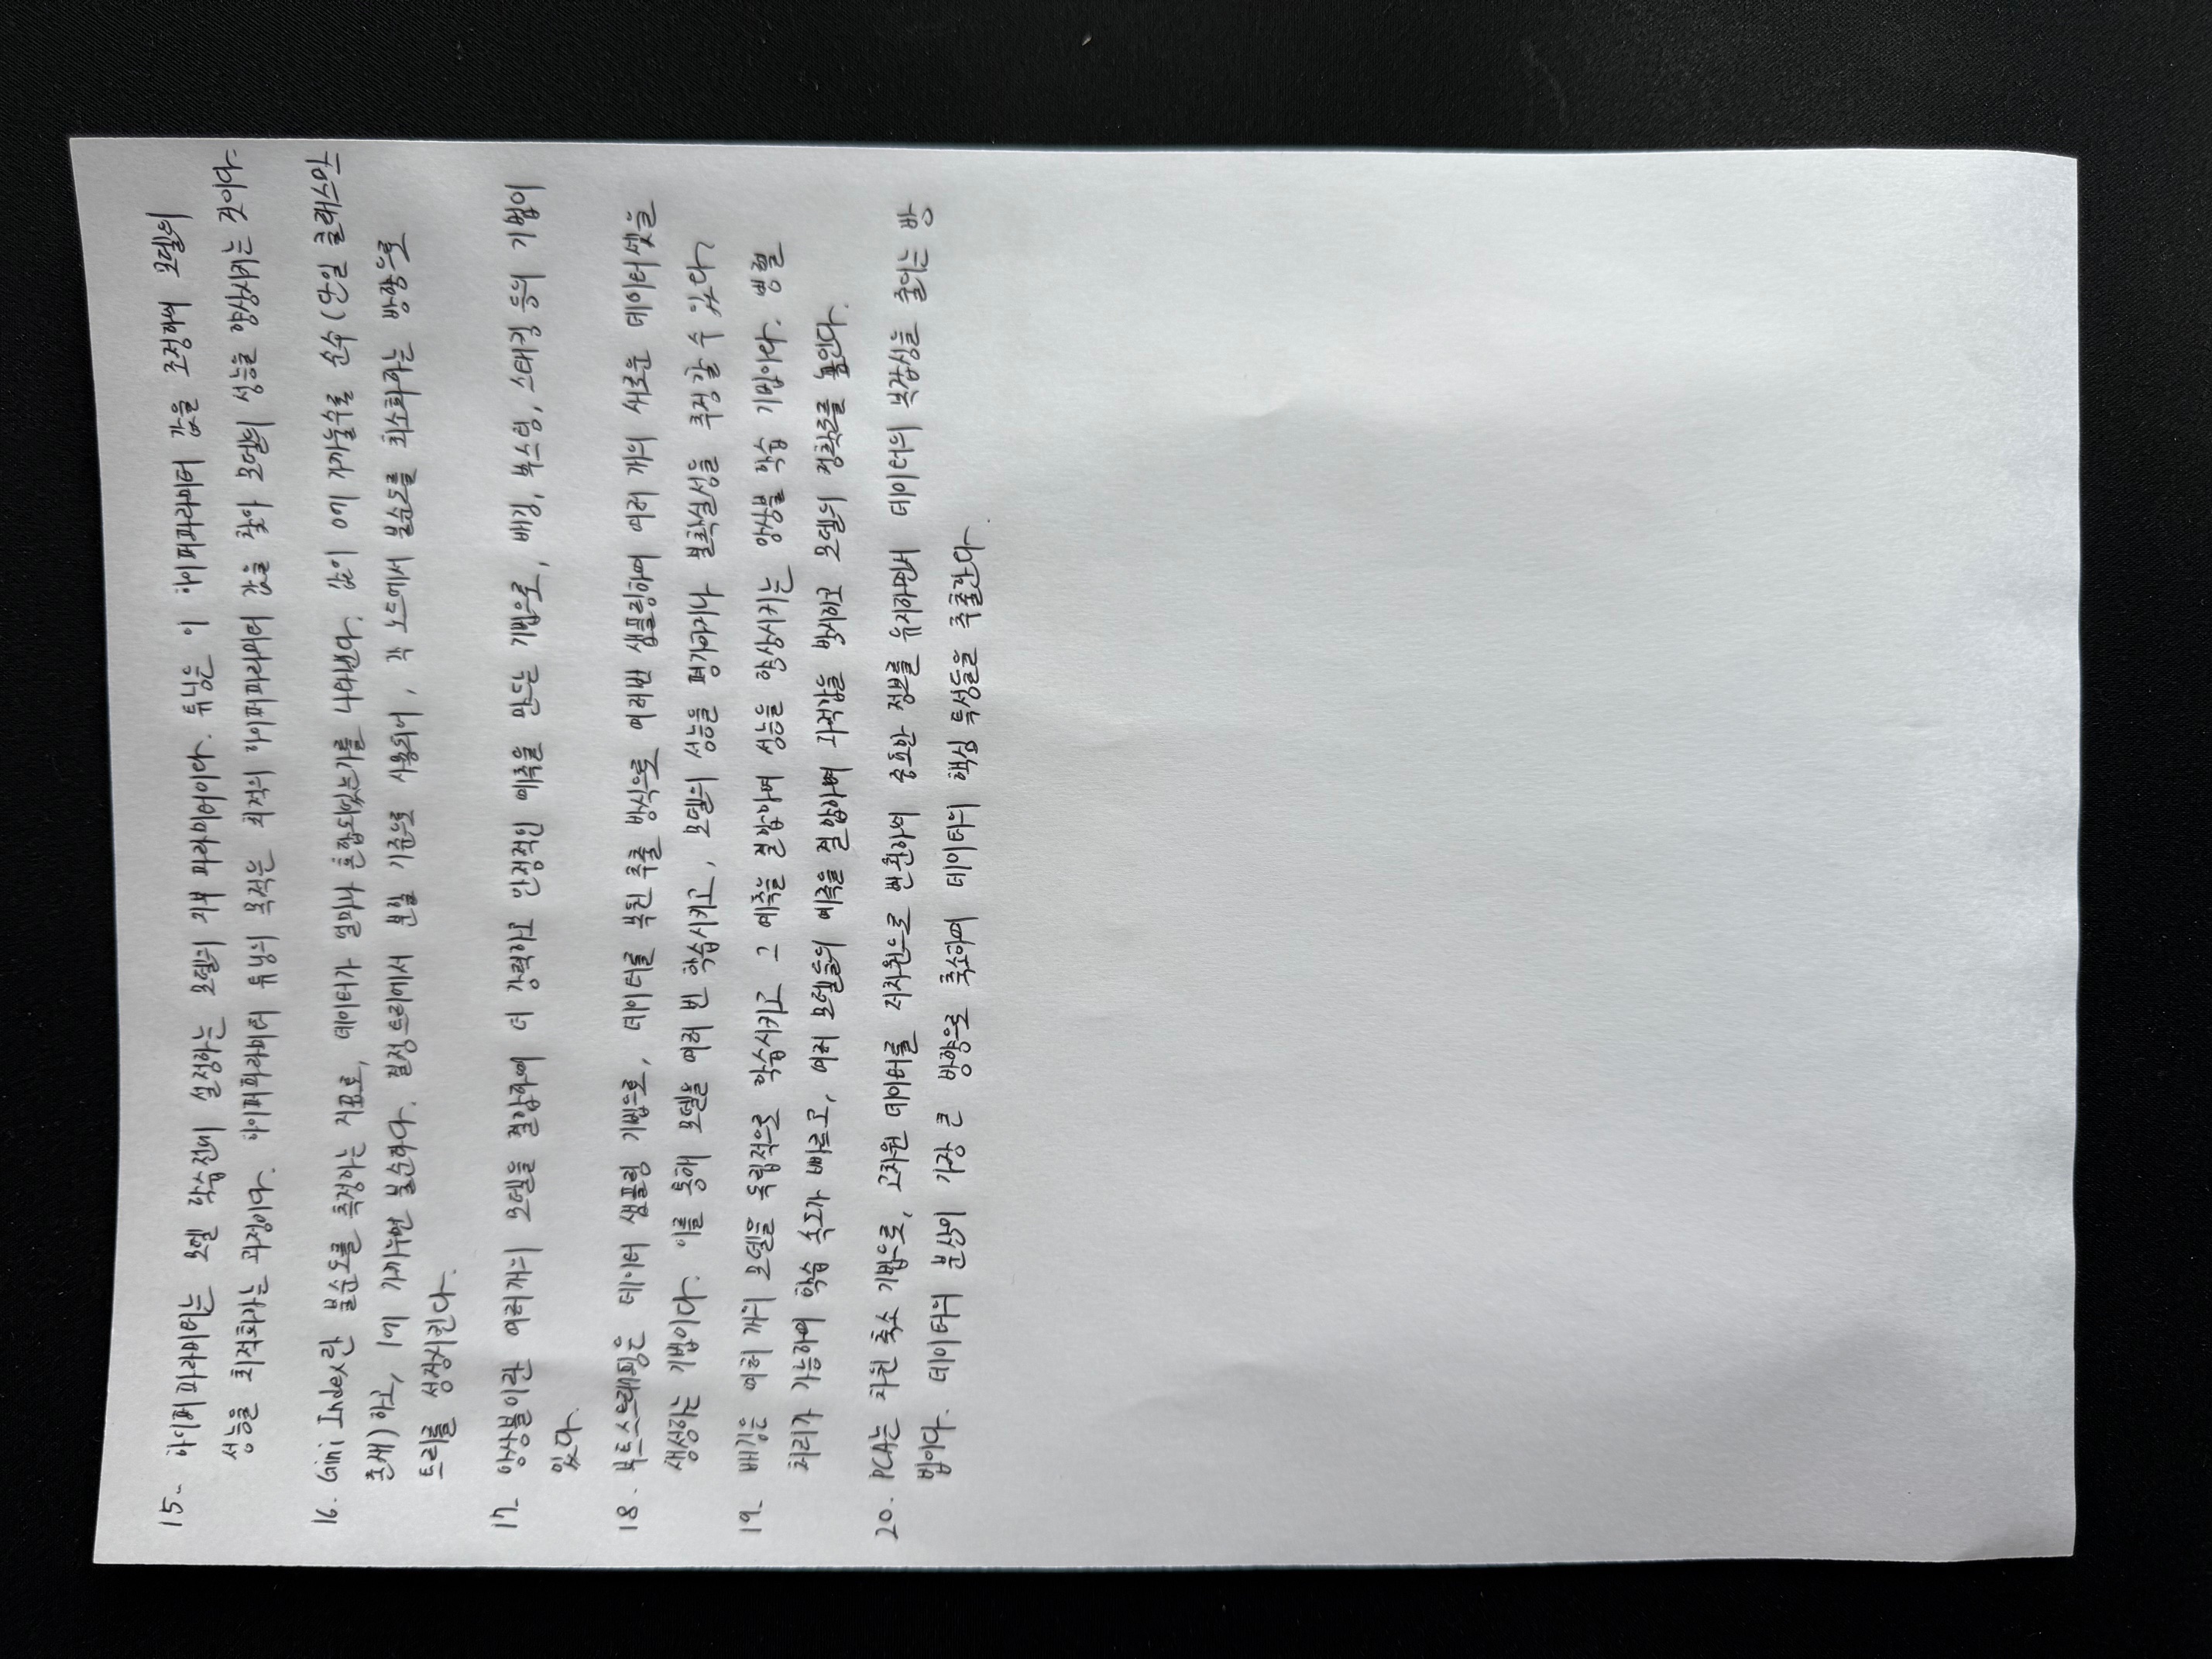 15. 하이퍼파라미터는 모델 학습전에 설정하는 모델의 외부 파라미터이다. 튜닝은 이 하이퍼파라미터 값을 조정하여 모델의
성능을 최적화하는 과정이다. 하이퍼파라미터 튜닝의 목적은 최적의 하이퍼파라미터 값을 찾아 모델의 성능을 향상시키는 것이다.
16. Gini Index란 불순도를 측정하는 지표로, 데이터가 얼마나 혼합되있는가를 나타낸다. 값이 0에 가까울수록 순수(단일 클래스만
존재)하고, 1에 가까우면 불순하다. 결정트리에서 분할 기준으로 사용되어, 각 노드에서 불순도를 최소화하는 방향으로
트리를 성장시킨다.
17. 앙상블이란 여러개의 모델을 결합하여 더 강력하고 안정적인 예측을 만드는 기법으로, 배깅, 부스팅, 스태킹 등의 기법이
있다.
18. 부트스트래핑은 데이터 샘플링 기법으로, 데이터를 복원 추출 방식으로 여러번 샘플링하여 여러 개의 새로운 데이터셋을
생성하는 기법이다. 이를 통해 모델을 여러 번 학습시키고, 모델의 성능을 평가하거나 불확실성을 추정할 수 있다.
19. 배깅은 여러 개의 모델을 독립적으로 학습시키고 그 예측을 결합하여 성능을 향상시키는 앙상블 학습 기법이다. 병렬
처리가 가능하여 학습 속도가 빠르고, 여러 모델들의 예측을 결합하여 과적합을 방지하고 모델의 정확도를 높인다.
20. PCA는 차원 축소 기법으로, 고차원 데이터를 저차원으로 변환하여 중요한 정보를 유지하면서 데이터의 복잡성을 줄이는 방
법이다. 데이터의 분산이 가장 큰 방향으로 축소하여 데이터의 핵심 특성들을 추출한다.